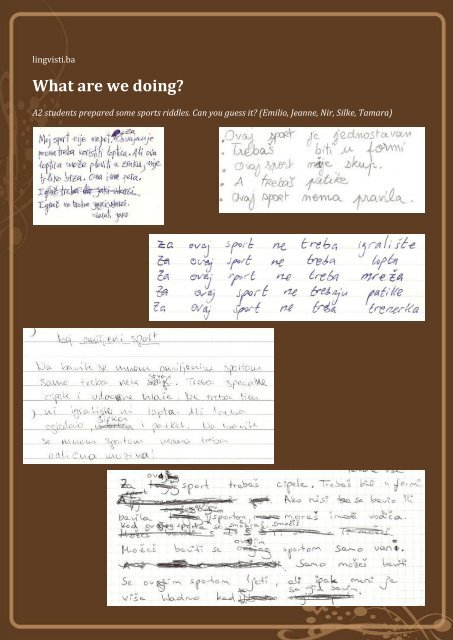 lingvisti.ba
What are we doing?
A2 students prepared some sports riddles. Can you guess it? (Emilio, Jeanne, Nir, Silke, Tamara)
Moj sport nije napet. Za
nema treba koristiti loptica. Ali ova
loptica može ploviti u zraku, nije
toliko brza. Ona ima
Igrač treba
Igrač ne treba
· Ovaj sport je jednostavan
· Trebaš biti u formi
· Ovaj sport nije skup.
· A trebaš patike
· Ovaj sport nema pravila.
Za ovaj sport ne treba igralište
Za ovaj sport ne treba lopta
Za ovaj sport ne treba mreža
Za ovaj sport ne trebaju patike
Za ovaj sport ne treba trenerka
Moj omiljeni sport
Da bavite se mnom omiljenim sportom
samo treba neke stvari. Treba
cipele i udobne hlače. Ne treba tim
ni igralište ni lopta. Ali treba
ogledalo, i parket. Da bavite
se mnom sportom treba
odlična muzika!
Za ovaj sport trebaš cipele. Trebaš biti u formi.
Ako nisi se bavio ili
bavila sportom moraš imati vodiča.
Kod ovog sporta se smiješ
Možeš baviti se ovim sportom samo vani.
Samo možeš baviti
se ovim sportom ljeti, ali ipak meni je
više hladno kad se njim bavim.